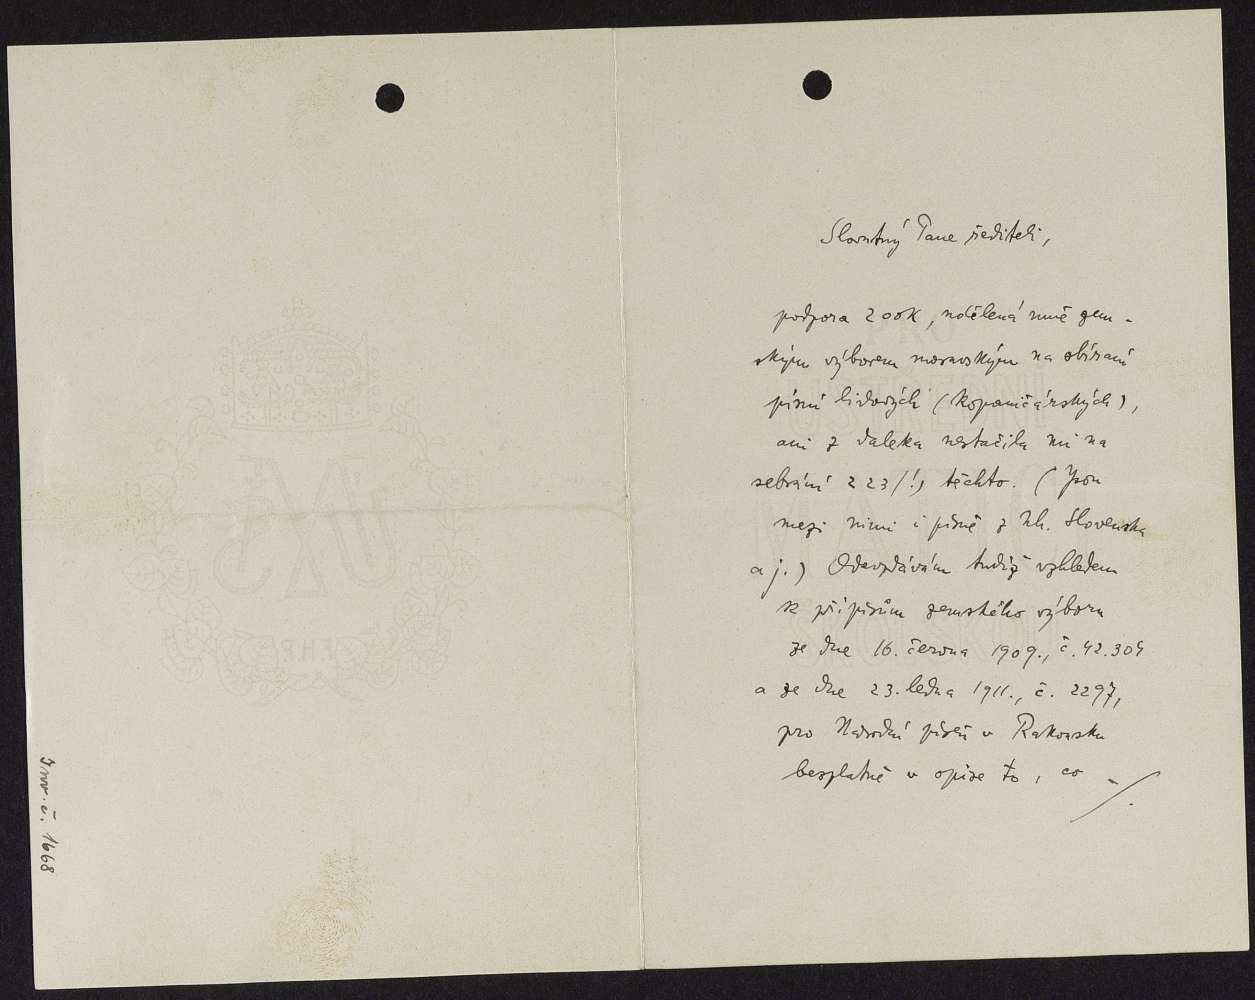 Slovutný Pane řediteli,
podpora 200K, udělená mně zem-
ským výborem moravským na sbírání
písní lidových (kopaničářských),
ani z daleka nestačila mi na
sebrání 223 (!) těchto. (Jsou
mezi nimi i písně z Uh. Slovenska
a j.) Odevzdávám tudíž vzhledem
k přípisům zemského výboru
ze dne 16. června 1909., č. 42.304
a ze dne 23. ledna 1911., č. 2297,
pro Národní píseň v Rakousku
bezplatně v opise to, co -/.
Inv. č. 1668